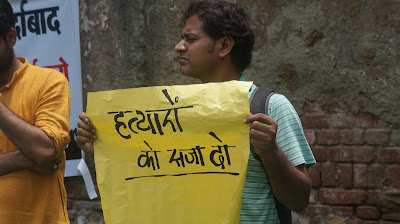 र्दाबाद
हत्यारों
को सजा दो